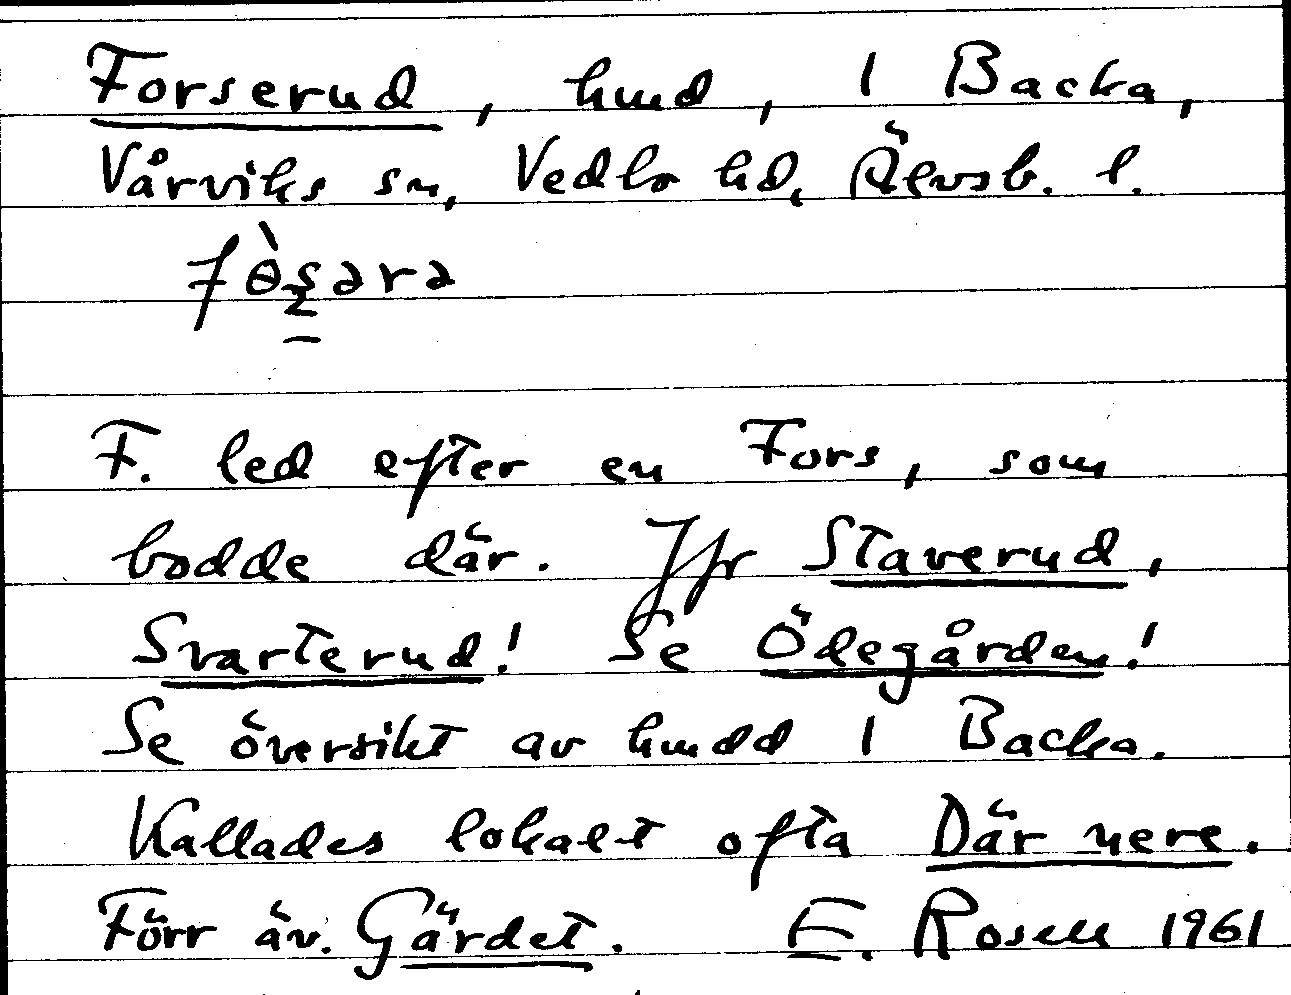 Forserud, hmd, 1 Backa,
Vårviks sn, Vedbo hd, Älvsb. l.
F. led efter en Fors, som
bodde där. Jfr Staverud,
Svarterud! Se Ödegården!
Se översikt av hmdd 1 Backa.
Kallades lokalt ofta Där nere.
Förr äv. Gärdet. E. Rosell 1961